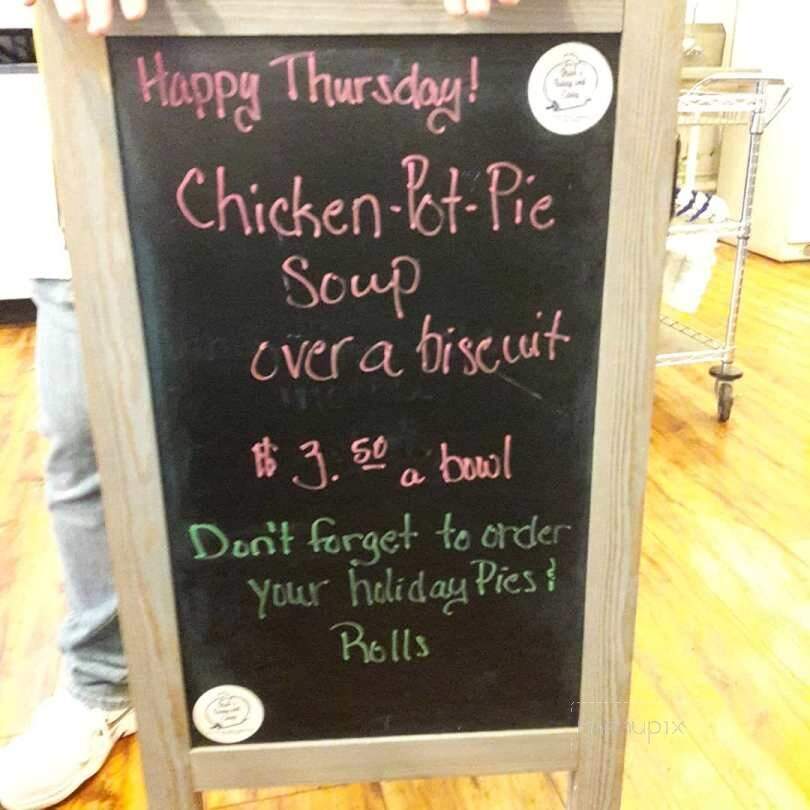 Happy Thursday!
Chicken-Pot-Pie
Soup
over a biscuit
$3.50 a bowl
Don't forget to order
your holiday Pies &
Rolls